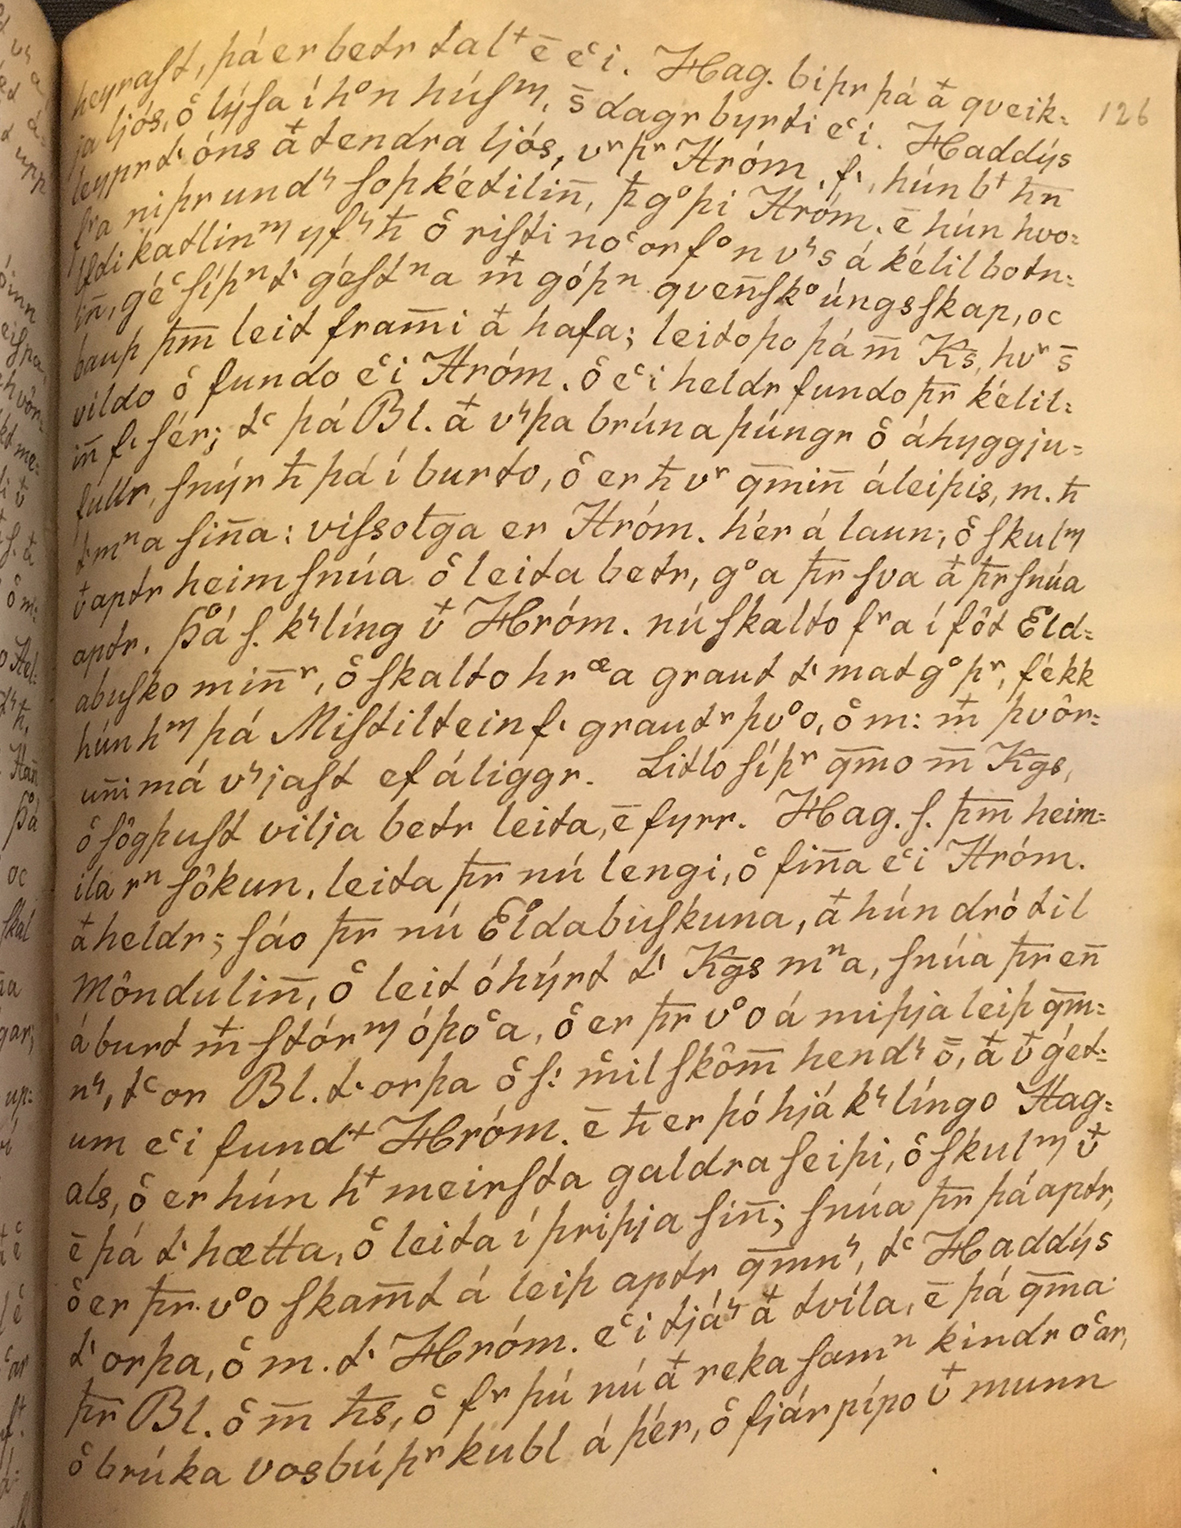 heyrast, þá er betr tal⁺ ē eͨi. Hag. biþr þá a⁺ qveik=
126
ja ljós, oͨ lýsa í h°n húsᵐ, s̄ dagr byrti eͨi. Haddýs
leyprt· óns a⁺ tendra ljós, vʳ þʳ Hróm. f·, hún b⁺ hn̄
fʳa niþr undˢ soþkétilin̄, þ̄ g°þi Hróm. ē hún hvo=
lfdi katlinᵐ yfˢ ħ oͨ risti noͨor f°n vˢs á kétilbotn=
in̄, géͨ síþⁿ t· géstⁿa m⁺ góþⁿ qven̄sk°úngsskap, oc
bauþ þm̄ leit fram̄i a⁺ hafa; leitoþo þá m̄ Ks̄, hvʳ s̄
vildo oͨ fundo eͨi Hróm. oͨ eͨi heldr fundo þr̄ kétil=
in̄ f· sér; tͨ þá Bl. a⁺ vˢþa brúnaþúngr oͨ áhyggju=
fullr, snýr ħ þá í burto, oͨ er ħ vʳ qm̄in̄ áleiþis, m. ħ
t· mⁿa sin̄a: vissotga er Hróm. hér á laun; oͨ skulᵐ
v⁺ aptr heim snúa oͨ leita betr, g°a þr̄ sva a⁺ þr̄ snúa
aptr. Þá s. kˢlíng v⁺ Hróm. nú skalto fʳa í föt Eld=
abusko min̄ʳ, oͨ skalto hrœa graut t· matg°þʳ, fékk
hún hᵐ þá Mistiltein f· grautʳþv°o, oͨ m: m⁺ þvör=
un̄i má vˢjast ef áliggr. Litlo síþʳ qm̄o m̄ Kgs,
oͨ sögþust vilja betr leita, ē fyrr. Hag. s. þm̄ heim=
ila rⁿsökun, leita þr̄ nú lengi, oͨ fin̄a eͨi Hróm.
a⁺ heldr; sáo þr̄ nú Eldabuskuna, a⁺ hún dró til
Möndulin̄, oͨ leit óhýrt t· Kgs mⁿa, snúa þr̄ en̄
á burt m⁺ stórᵐ óþoͨa, oͨ er þr̄ v°o á miþja leiþ qm̄=
nˢ, tͨ or Bl. t· orþa oͨ s: mil sköm̄ hendˢ ō, a⁺ v⁺ gét=
um eͨi fund⁺ Hróm. ē ħ er þó hjá kˢlíngo Hag=
als, oͨ er hún h⁺ meirsta galdraseiþi, oͨ skulᵐ v⁺
ē þá t· hætta, oͨ leita í þriþja sin̄; snúa þr̄ þá aptr,
oͨ er þr̄ v°o skam̄t á leiþ aptr qm̄nˢ, tͨ Haddýs
t· orþa, oͨ m. t· Hróm. eͨi tjáˢ a⁺ tvíla, ē þá qm̄a
þr̄ Bl. oͨ m̄ ħs, oͨ fʳ þú nú a⁺ reka samⁿ kindr oͨar,
oͨ brúka vosbúþʳkubl á þér, oͨ fjárpípo v⁺ munn